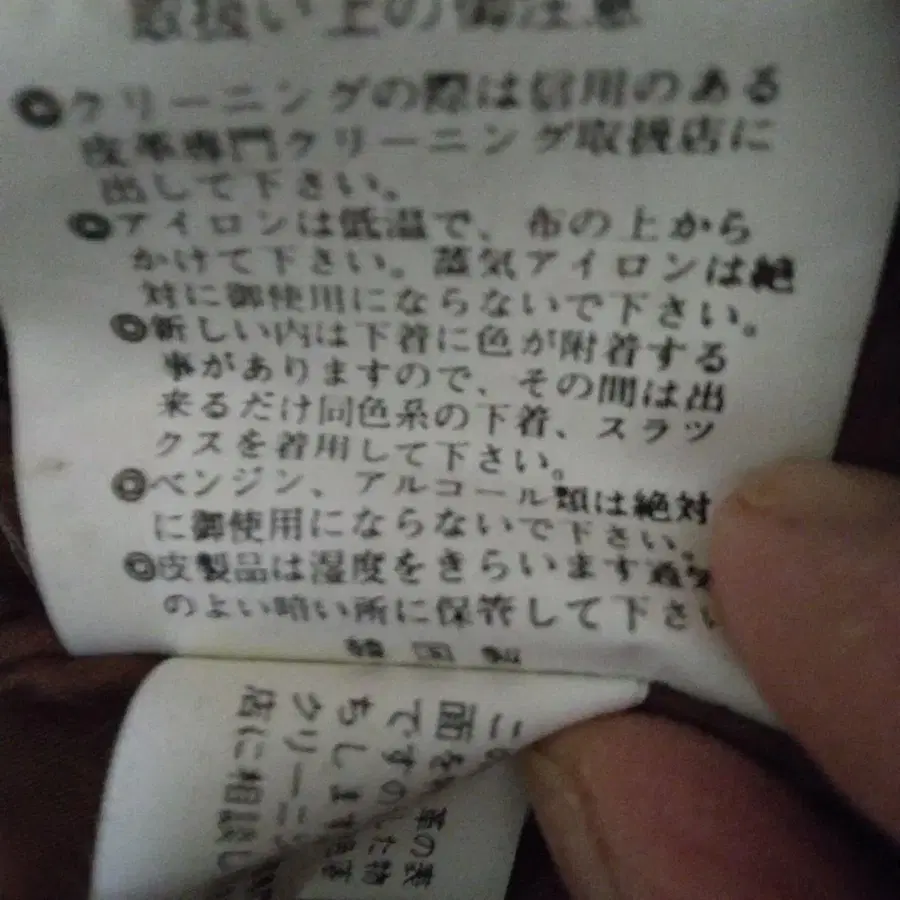 取扱い上の御注意
◎クリーニングの際は信用のある
皮革専門クリーニング取扱店に
出して下さい。
◎アイロンは低温で、布の上から
かけて下さい。蒸気アイロンは絶
対に御使用にならないで下さい。
◎新しい内は下着に色が附着する
事がありますので、その間は出
来るだけ同色系の下着、スラツ
クスを着用して下さい。
◎ベンジン、アルコール類は絶対
に御使用にならないで下さい。
◎皮製品は湿度をきらいます通気
のよい暗い所に保管して下さい
韓国製
革の表
面を
ですので
た物
ちします
クリーニン
店に相談し